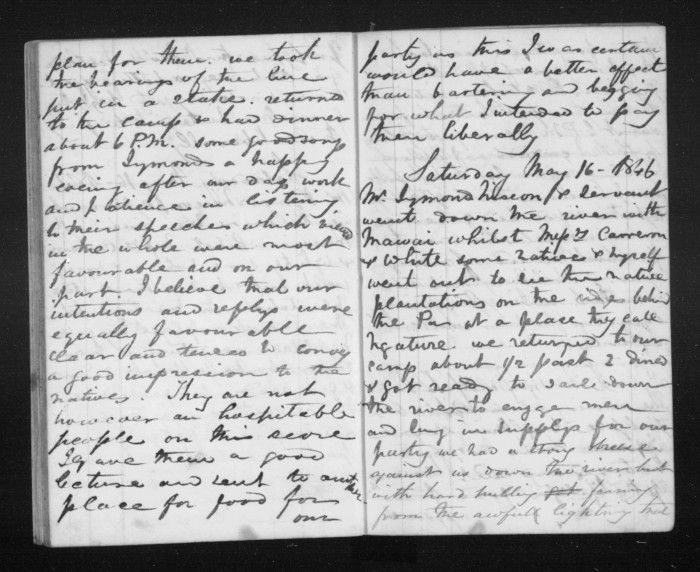 plan for them. we took
the bearings of the line
put in a stake. returned
to the camp & had dinner
about 6 P.M. some good songs
from Symonds a happy
evening after our days work
and patience in listening
to their speeches which
in the whole were most
favourable and on our
part. I believe that our
intentions and replys were
equally favourable
clear and tended to convey
a good impression to the
natives. They are not
however an hospitable
people on this score
I gave them a good
lecture and sent to another
place for food for
our
party as this I was certain
would have a better effect
than bartering and begging
for what I intended to pay
them liberally
Saturday May 16 - 1846
Mr. Symonds & servant
went down the river with
Mawai whilst Messrs Cameron
& White some natives & myself
went out to see the native
plantations on the ridges behind
the Pa at a place they call
Ngature we returned to our
camp about 1/2 past 2 dined
& got ready to sail down
the river to engage men
and buy in supplys for our
party we had a strong breeze
against us down the river but
with hard pulling
from the awfull lightning that